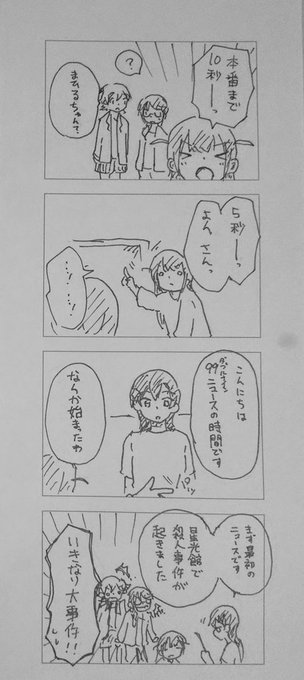 本番まで
10秒ーっ
?
5秒ーっ
よん、さんっ
こんにちは
99ニュースの時間です
なんか始まったわ
まず最初の
ニュースです
星光館で
殺人事件が
起きました
いきなり大事件!!